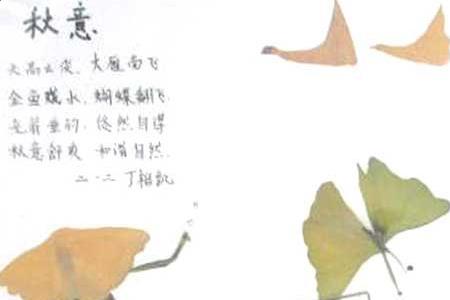 秋意
天高云淡，大雁南飞
金鱼戏水，蝴蝶翩飞
垂的，悠然自得
秋意舒爽，和谐自然.
二.二 丁